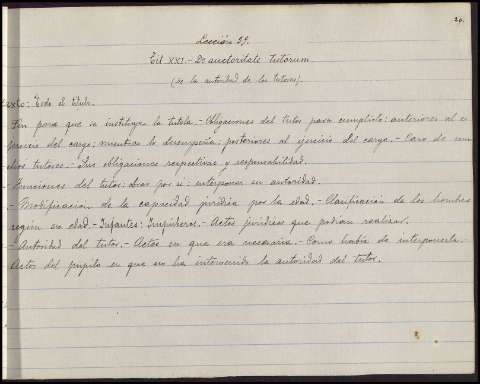 20.
Lección 29.
Tit XXI.- De auctoritate tutorum
(de la autoridad de los tutores).
Texto: Todo el título.
Fin para que se instituye la tutela.- Obligaciones del tutor para cumplirlo: anteriores al e
jercicio del cargo; mientras lo desempeña; posteriores al ejercicio del cargo.- Caso de
tutores.- Sus obligaciones respectivas y responsabilidad.
- Funciones del tutor: obrar por sí: interponer su autoridad.
- Modificación de la capacidad jurídica por la edad.- Clasificación de los hombres
según su edad.- Infantes: Impúberes.- Actos jurídicos que podían realizar.
- Autoridad del tutor.- Actos en que era necesaria.- Como había de interponerla.
Actos del pupilo en que no ha intervenido la autoridad del tutor.